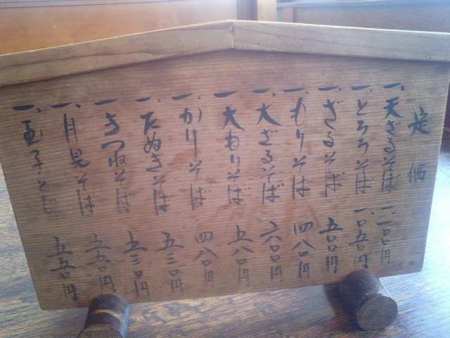 定価
一、天ざるそば 一、一〇〇円
一、とろろそば 一、〇五〇円
一、ざるそば 五〇〇円
一、もりそば 四八〇円
一、大ざるそば 六〇〇円
一、大もりそば 五八〇円
一、かけそば 四八〇円
一、たぬきそば 五三〇円
一、きつねそば 五三〇円
一、月見そば 五五〇円
一、玉子とじ 五五〇円